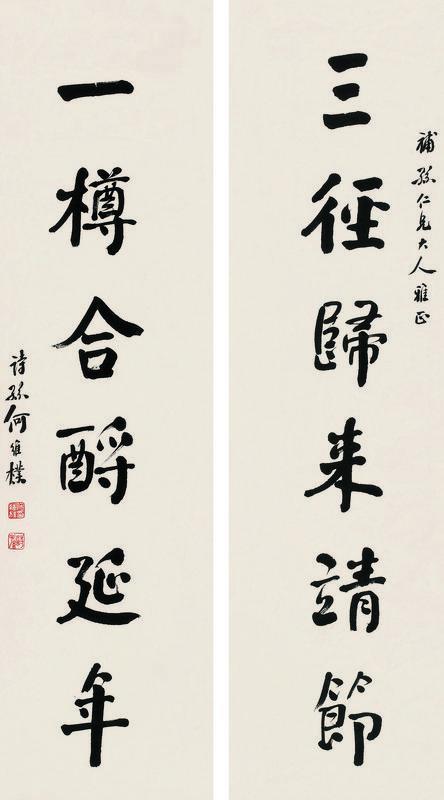 補孫仁兄大人雅正
三徑歸來靖節
一樽合酹延年
詩孫何維樸